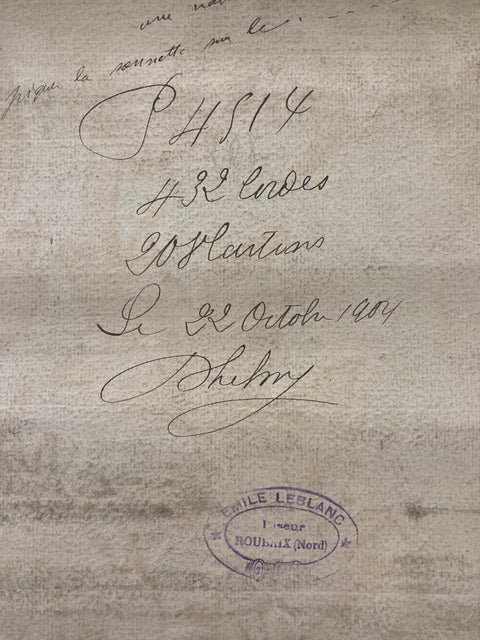 une
piquer la sonnette sur le
P 4514
432 Cordes
20 Martins
Le 22 Octobre 1904
Dhelmy
EMILE LEBLANC
Liseur
ROUBAIX (Nord)